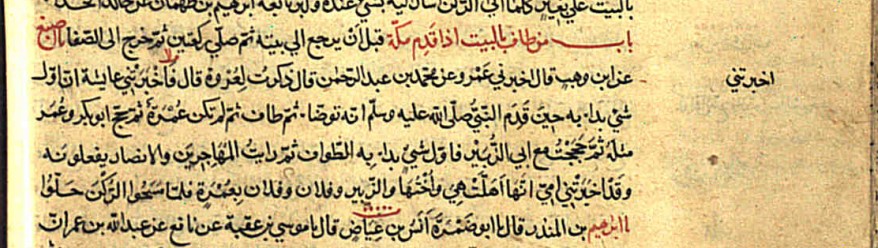 بالبيت على بعير كلما اتى الركن اشار اليه بشي عنده وكبر تابعه ابراهيم بن طهمان عن خالد الحذاء
باب من طاف بالبيت اذا قدم مكة قبل ان يرجع الى بيته ثم صلى ركعتين ثم خرج الى الصفا نا اصبغ
عن ابن وهب قال اخبرني عمرو عن محمد بن عبد الرحمن قال ذكرت لعروة قال فاخبرتني عايشة ان اول
اخبرتني
شي بدا به حين قدم النبي صلى الله عليه وسلم انه توضا ثم طاف ثم لم تكن عمرة ثم حج ابو بكر وعمر
مثله ثم حججت مع ابي الزبير فاول شي بدا به الطواف ثم رايت المهاجرين والانصار يفعلونه
وقد اخبرتني امي انها اهلت هي واختها والزبير وفلان وفلان بعمرة فلما مسحوا الركن حلوا
نا ابراهيم بن المنذر قال نا ابو ضمرة انس بن عياض قال نا موسى بن عقبة عن نافع عن عبد الله بن عمر ان